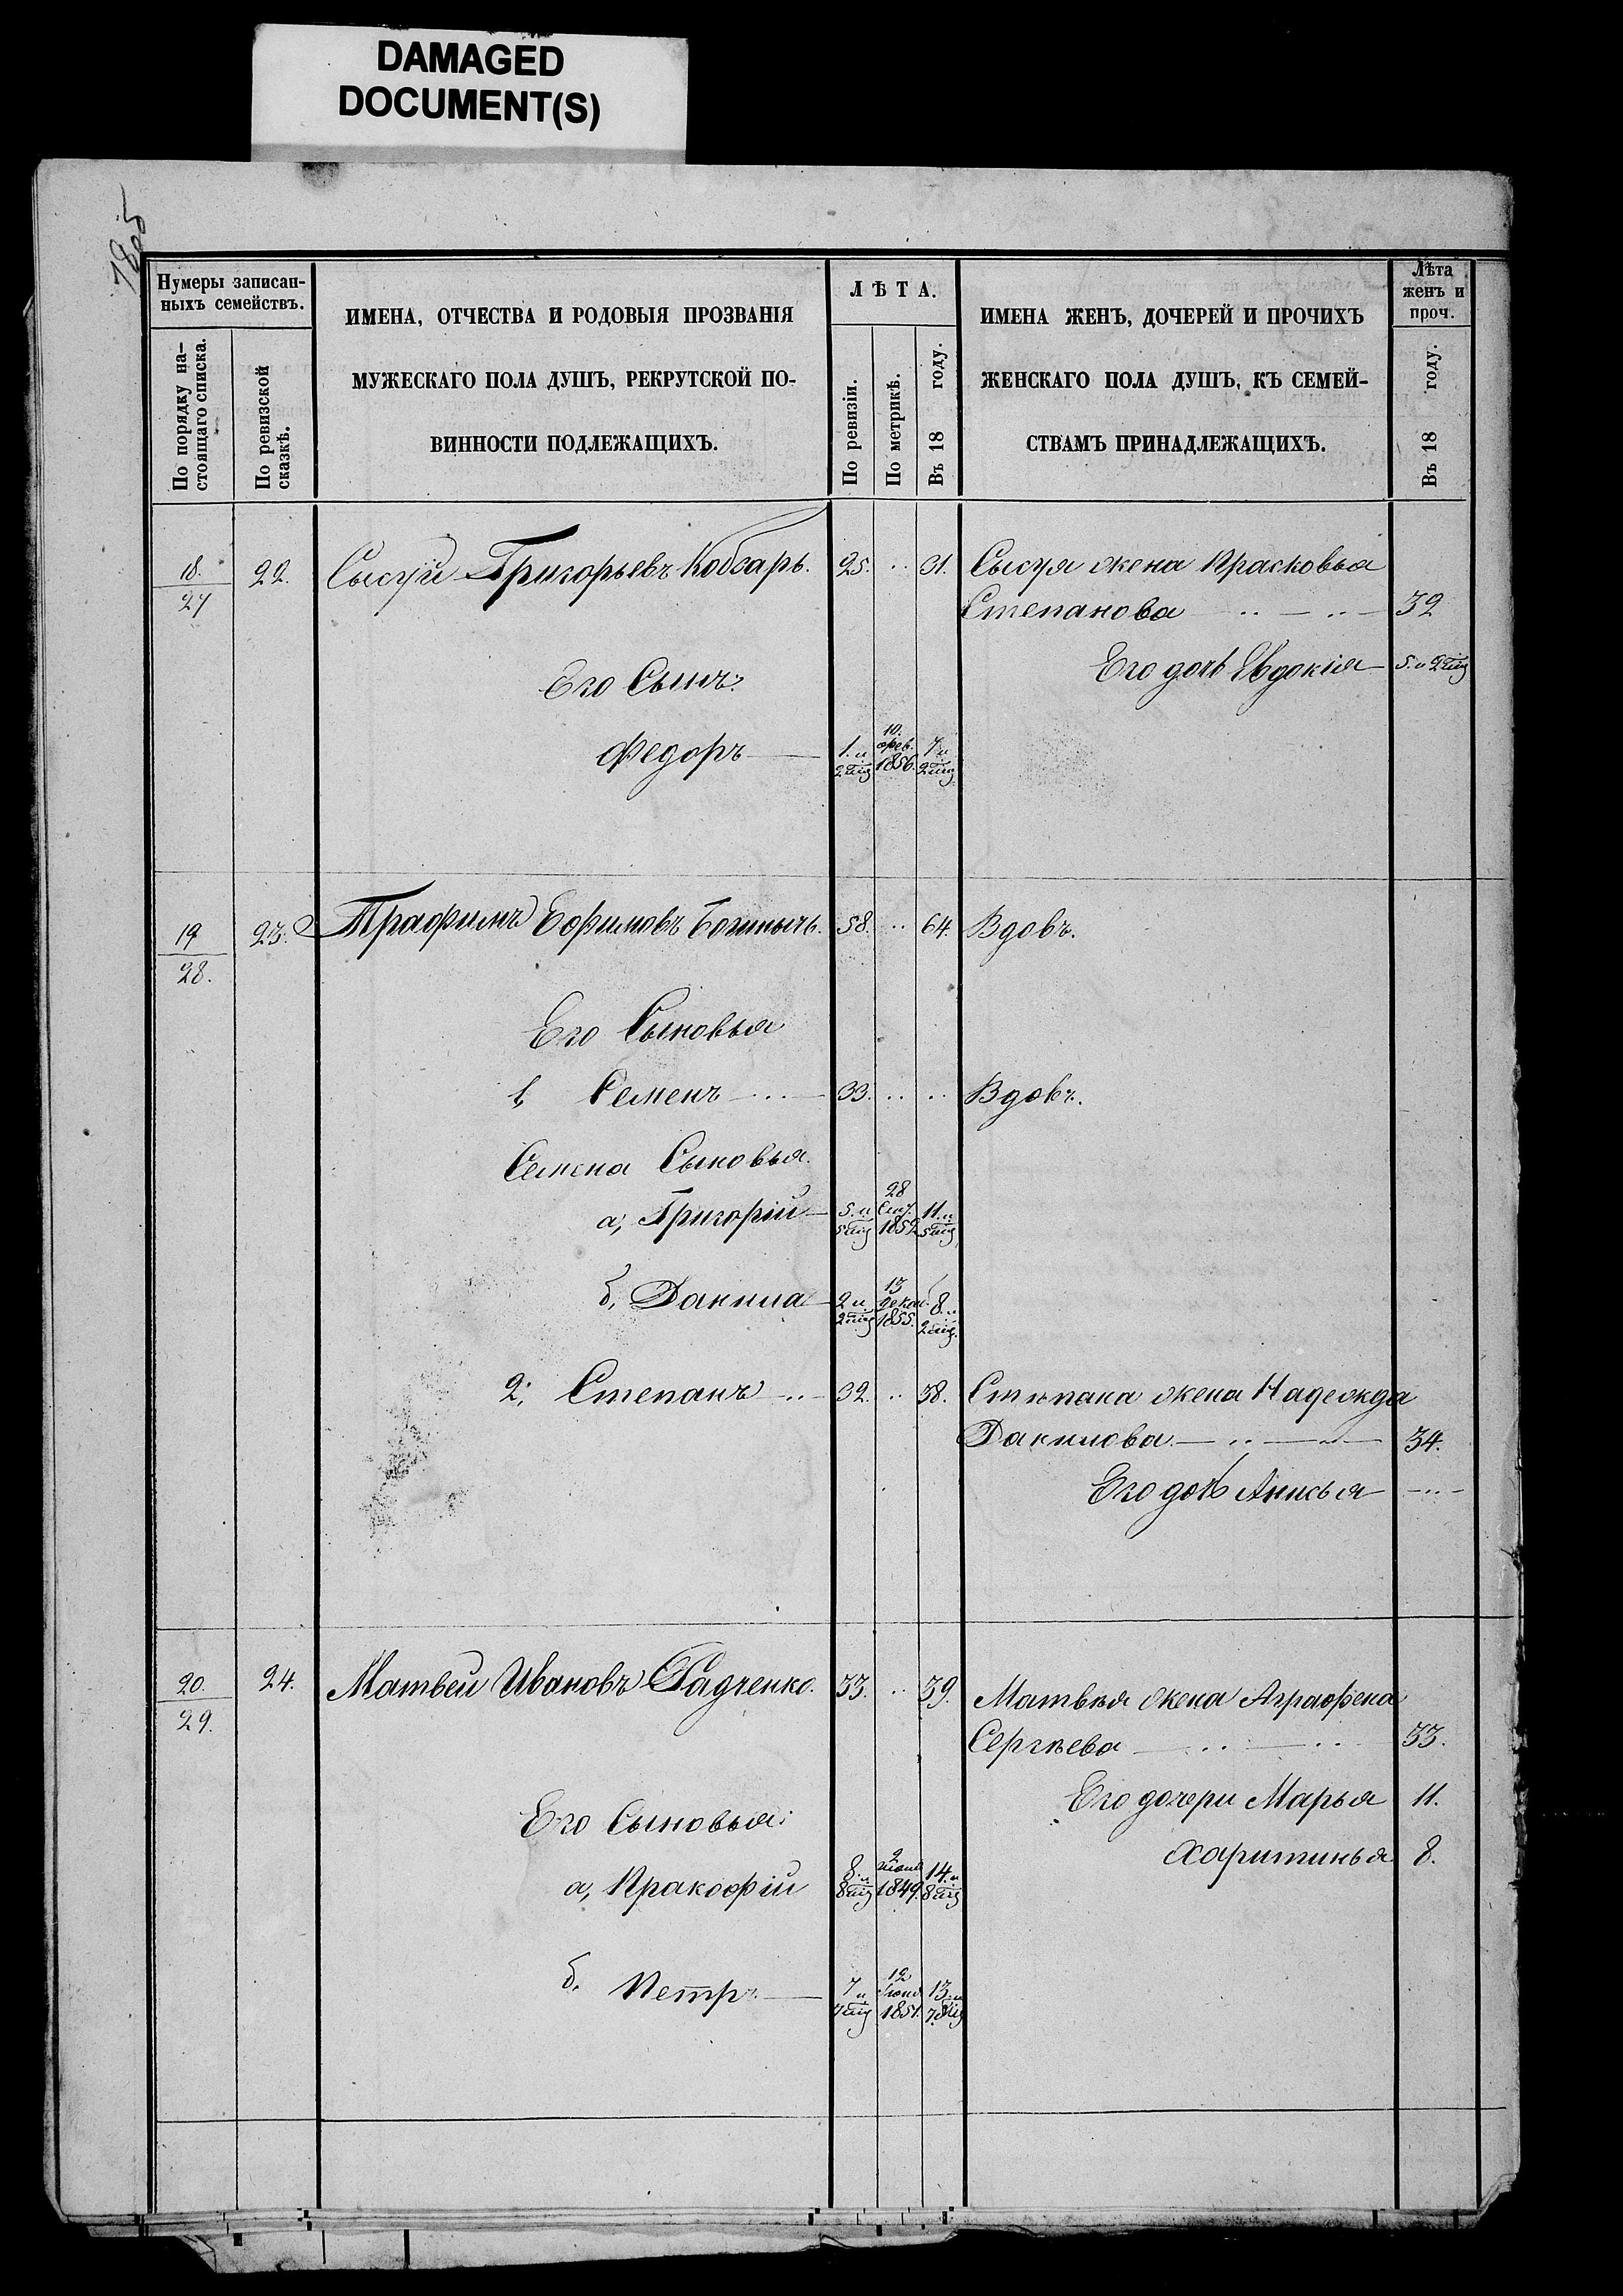 DAMAGED
DOCUMENT(S)
Нумеры записан-
ныхъ семействъ.
По порядку на-
стоящаго списка.
По ревизской
сказкѣ.
ИМЕНА, ОТЧЕСТВА И РОДОВЫЯ ПРОЗВАНІЯ
МУЖЕСКАГО ПОЛА ДУШЪ, РЕКРУТСКОЙ ПО-
ВИННОСТИ ПОДЛЕЖАЩИХЪ.
ЛѢТА.
По ревизіи.
По метрикѣ.
Въ 18 году.
ИМЕНА ЖЕНЪ, ДОЧЕРЕЙ И ПРОЧИХЪ
ЖЕНСКАГО ПОЛА ДУШЪ, КЪ СЕМЕЙ-
СТВАМЪ ПРИНАДЛЕЖАЩИХЪ.
Лѣта
женъ и
проч.
Въ 18 году.
18. 22. Сысуй Григорьевъ Кобзарь. 25. 31. Сысуя жена Красковья
27
Степанова 32
Его дочь Евдокія 5. и 2 мѣц
Его Сынъ:
Федоръ 1. и 2 мѣц 10. фев. 1856. 7 и 2 мѣц
19 23. Трафимъ Ефимовъ 58. 64. Вдовъ.
28.
Его Сыновья
1, Семенъ 33. Вдовъ.
Семена Сыновья.
а, Григорій 5. и 5 мѣц 28 1852 11. и 5 мѣц
б, Данила 2 и 2 мѣц 13 декаб. 1855. 8 и 2 мѣц.
2, Степанъ 32. 38. Степана жена Надежда
Данилова 34.
Его дочь Анисья
20. 24. Матвей Ивановъ Радченко. 33. 39. Матвѣя жена Аграфена
29.
Сергѣева 33.
Его дочери Марья 11.
Харитинья 8.
Его Сыновья:
а, Пракофій 8. и 8 мѣц 2 1849. 14. и 8 мѣц
б. Петръ 7 и 7 мѣц 12 1851. 13. и 7 мѣц